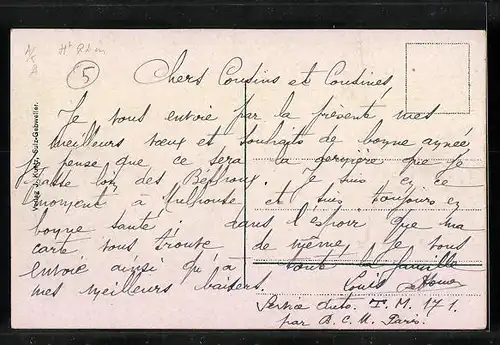 Hᵗ Rhin
5
Chers Cousins et Cousines
Je vous envoie par la présente mes
meilleurs vœux et souhaits de bonne année,
je pense que ce sera la dernière que je
passe loin des Je suis en ce
moment à Mulhouse et suis toujours en
bonne santé dans l'espoir que ma
carte vous trouve de même, Je vous
envoie ainsi qu'à toute la famille
mes meilleurs baisers. Louis
Service Auto. T. M. 171.
par B. C. M. Paris.
Sulz-Gebweiler.